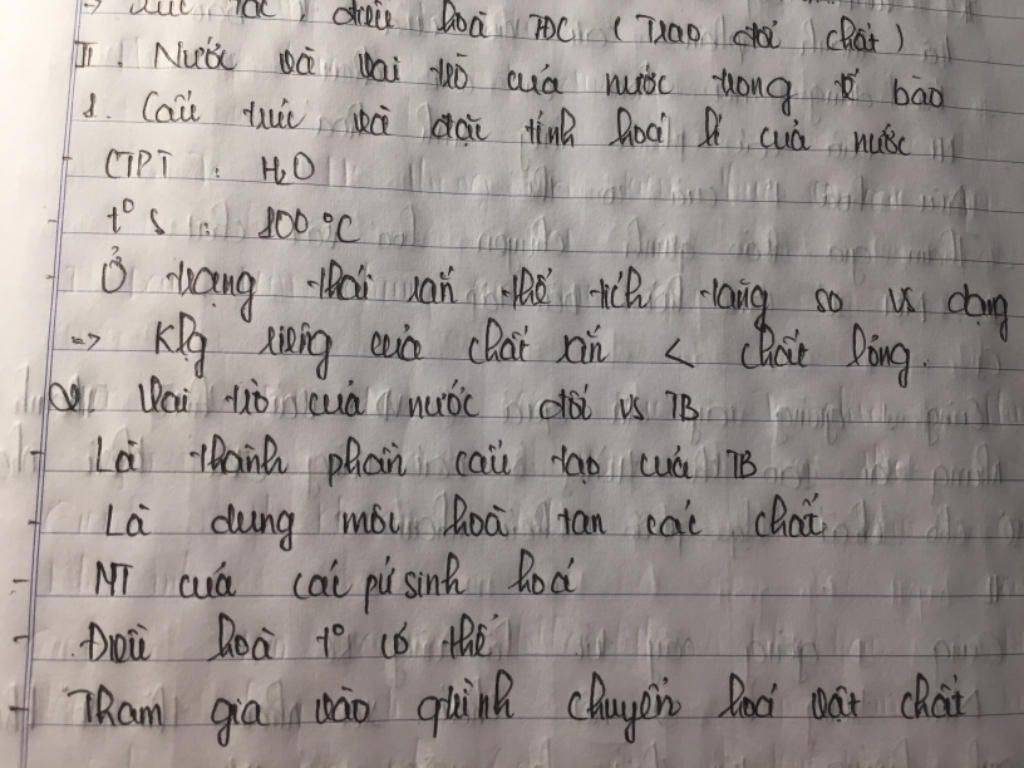 -> xúc tác, điều hoà TĐC (Trao đổi chất)
II. Nước và vai trò của nước trong tế bào
1. Cấu trúc và đặc tính hoá lí của nước
- CTPT : H₂O
- t° s : 100°C
- Ở trạng thái rắn thể tích tăng so vs dạng
=> Klg riêng của chất rắn < chất lỏng.
2. Vai trò của nước đối vs TB
- Là thành phần cấu tạo của TB
- Là dung môi hoà tan các chất
- MT của các pứ sinh hoá
- Điều hoà t° cơ thể
- Tham gia vào quá trình chuyển hoá vật chất